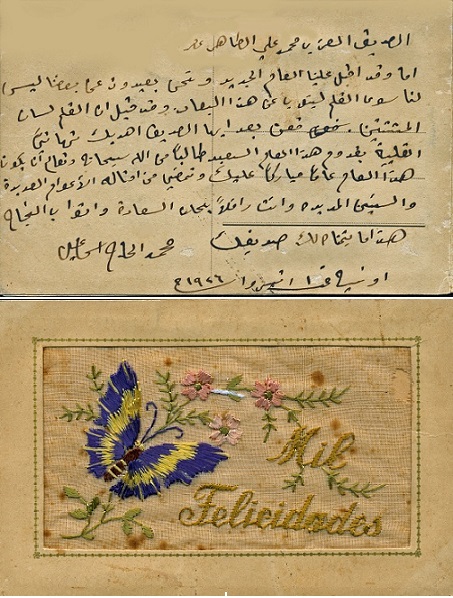 الصديق العزيز محمد علي الطاهر
اما وقد اطل علينا العام الجديد ونحن بعيدون عن بعضنا ليس
لنا سوى القلم لينوب عن هذا البعاد وقد قيل ان القلم لسان
ايها الصديق اهديك تهانيّ
القلبية بقدوم هذا العام السعيد طالباً من الله سبحانه وتعالى أن يكون
هذا العام عاماً مباركاً عليك من امثاله الأعوام العديدة
والسنين المديدة وانت رافلاً السعادة واثواب النجاح
هذا ما يتمناه لك صديقك
محمد الحاج
١٩٢٦
Mil
Felicidades